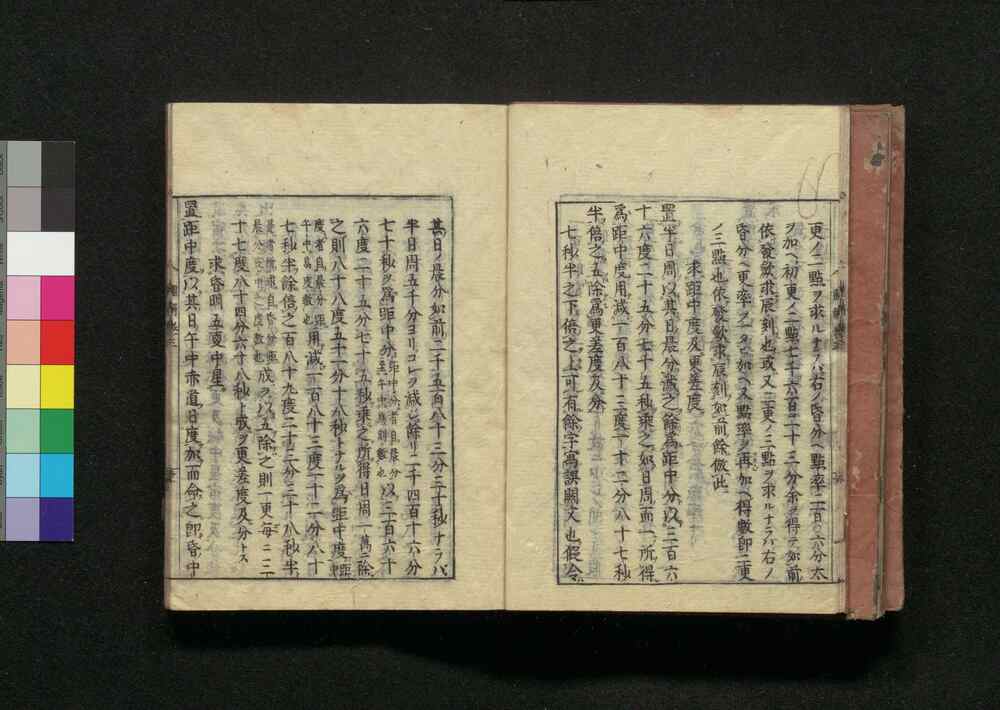 更ノ二點ヲ求ルナラバ右ノ昏分ヘ點率二百〇六分太
ヲ加ヘ初更ノ二點七千六百二十三分余ヲ得ヲ如前
依發斂求辰刻也或又二更ノ三點ヲ求ルナラバ右ノ
昏分ヘ更率ヲ一タビ加ヘ又點率ヲ再加ヘ得數即二更
ノ三點也依發斂求辰刻如前餘倣此
求距中度及更差度
置半日周以其日晨分減之餘為距中分以三百六
十六度二十五分七十五秒乘之如日周而一所得
為距中度用減一百八十三度一十二分八十七秒
半倍之五除為更差度及分
七秒半之下倍之上可有餘字寫誤闕文也假令
其日ノ晨分如前二千五百八十三分三十秒ナラバ
半日周五千分ヨリコレヲ減シ餘リ二千四百十六分
七十秒ヲ為距中分距中分者自晨分至午中之時間數也以三百六十
六度二十五分七十五秒乘之所得日周一萬ニ除
之則八十八度五十一分十八秒トナルヲ為距中度距中
度者自晨分距午中之度數也用減一百八十三度一十二分八十
七秒半餘倍之百八十九度二十三分三十八秒半
成ヲバ五除之則一更毎ニ三
十七度八十四分六十八秒ト成ヲ更差度及分トス
求昏明五更中星
置距中度以其日午中赤道日度加而命之即昏中